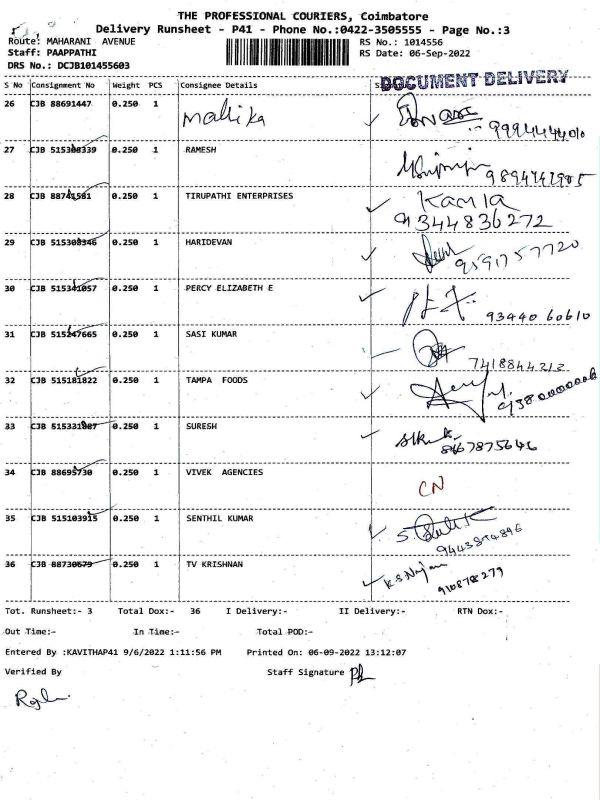 THE PROFESSIONAL COURIERS, Coimbatore
Delivery Runsheet - P41 - Phone No.:0422-3505555 - Page No.:3
Route: MAHARANI AVENUE
RS No.: 1014556
Staff: PAAPPATHI
RS Date: 06-Sep-2022
DRS No.: DCJB101455603
DOCUMENT DELIVERY
S No Consignment No Weight PCS Consignee Details
26 CJB 88691447 0.250 1 Mallika
27 CJB 515308339 0.250 1 RAMESH
28 CJB 88741581 0.250 1 TIRUPATHI ENTERPRISES Kamla
9344836272
29 CJB 515308346 0.250 1 HARIDEVAN
9591757720
30 CJB 515341057 0.250 1 PERCY ELIZABETH E
93440 60610
31 CJB 515247665 0.250 1 SASI KUMAR
7418844212
32 CJB 515181822 0.250 1 TAMPA FOODS
33 CJB 515331807 0.250 1 SURESH
8667875646
34 CJB 88695730 0.250 1 VIVEK AGENCIES CN
35 CJB 515103915 0.250 1 SENTHIL KUMAR
36 CJB 88730679 0.250 1 TV KRISHNAN
Tot. Runsheet:- 3 Total Dox:- 36 I Delivery:- II Delivery:- RTN Dox:-
Out Time:- In Time:- Total POD:-
Entered By :KAVITHAP41 9/6/2022 1:11:56 PM Printed On: 06-09-2022 13:12:07
Verified By Staff Signature